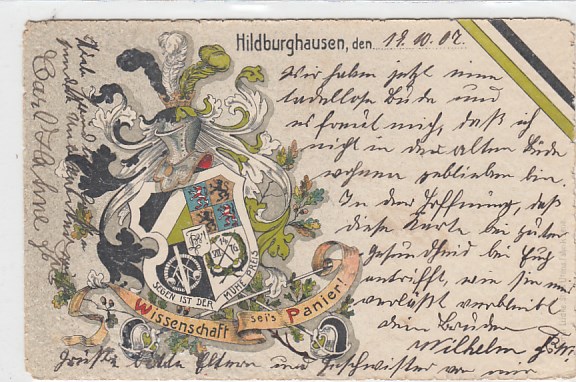 Hildburghausen, den 19.10.07.
Wir haben jetzt eine
tadellose Bude und
es freut mich, daß ich
nicht in der alten Bude
wohnen geblieben bin.
In der Hoffnung, daß
diese Karte bei guter
Gesundheit bei Euch
antrifft, wie sie mich
verläßt verbleibt
dein Bruder
Wilhelm
Grüße bitte Eltern und Geschwister von mir
Carl Hahne
SEGEN IST DER MÜHE PREIS
Wissenschaft sei's Panier!